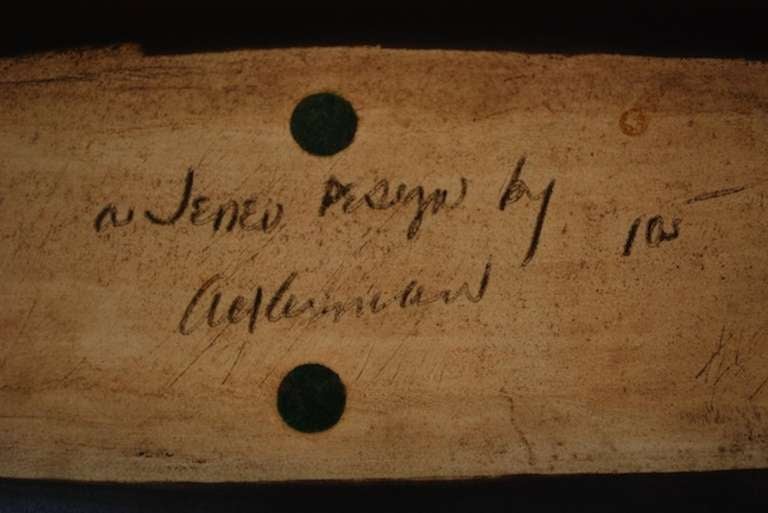 a Jenev Design by
Ackerman
10⁵